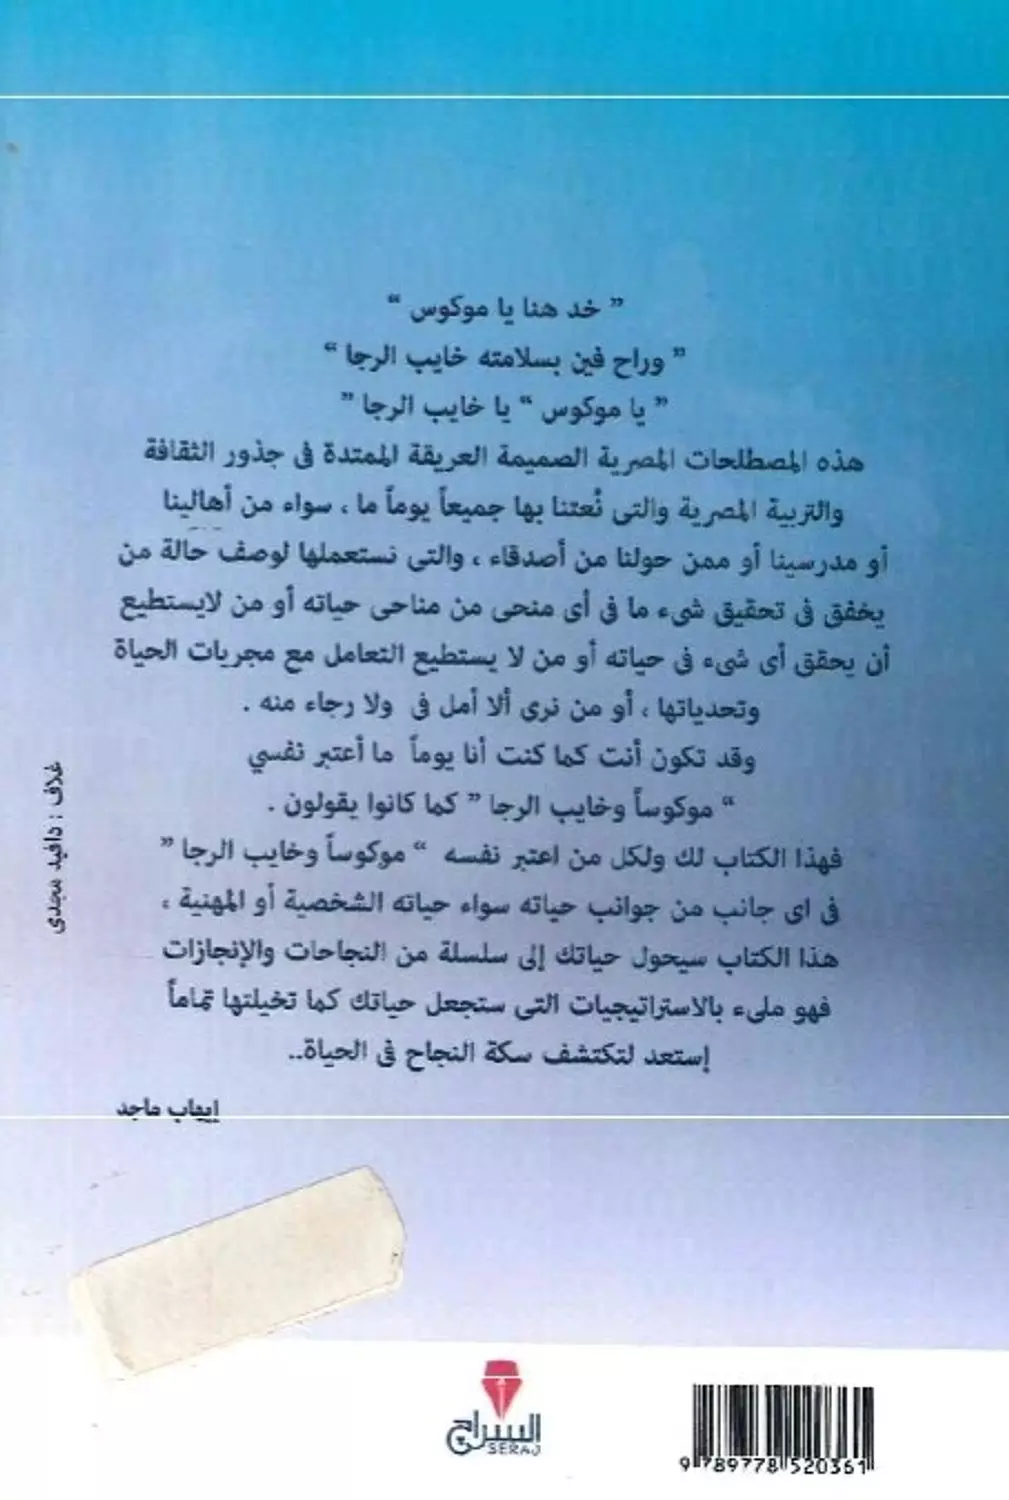 ” خد هنا يا موكوس “
” وراح فين بسلامته خايب الرجا “
” يا موكوس “ يا خايب الرجا ”
هذه المصطلحات المصرية الصميمة العريقة الممتدة فى جذور الثقافة
والتربية المصرية والتى نُعتنا بها جميعاً يوماً ما ، سواء من أهالينا
أو مدرسينا أو ممن حولنا من أصدقاء ، والتى نستعملها لوصف حالة من
يخفق فى تحقيق شىء ما فى أى منحى من مناحى حياته أو من لايستطيع
أن يحقق أى شىء فى حياته أو من لا يستطيع التعامل مع مجريات الحياة
وتحدياتها ، أو من نرى ألا أمل فى ولا رجاء منه .
وقد تكون أنت كما كنت أنا يوماً ما أعتبر نفسي
“ موكوساً وخايب الرجا ” كما كانوا يقولون .
فهذا الكتاب لك ولكل من اعتبر نفسه “ موكوساً وخايب الرجا ”
فى اى جانب من جوانب حياته سواء حياته الشخصية أو المهنية ،
هذا الكتاب سيحول حياتك إلى سلسلة من النجاحات والإنجازات
فهو ملىء بالاستراتيجيات التى ستجعل حياتك كما تخيلتها تماماً
إستعد لتكتشف سكة النجاح فى الحياة..
إيهاب ماجد
غلاف : دافيد مجدى
السراج
SERAJ
9 789778 520361